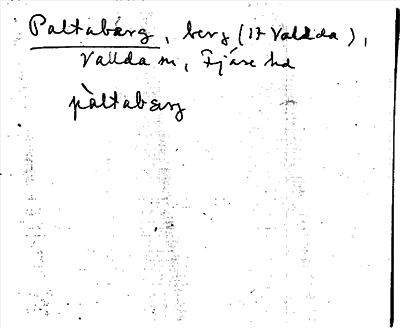 Paltabärg, berg (17 Vallda),
Vallda sn, Fjäre hd
pàltabærg